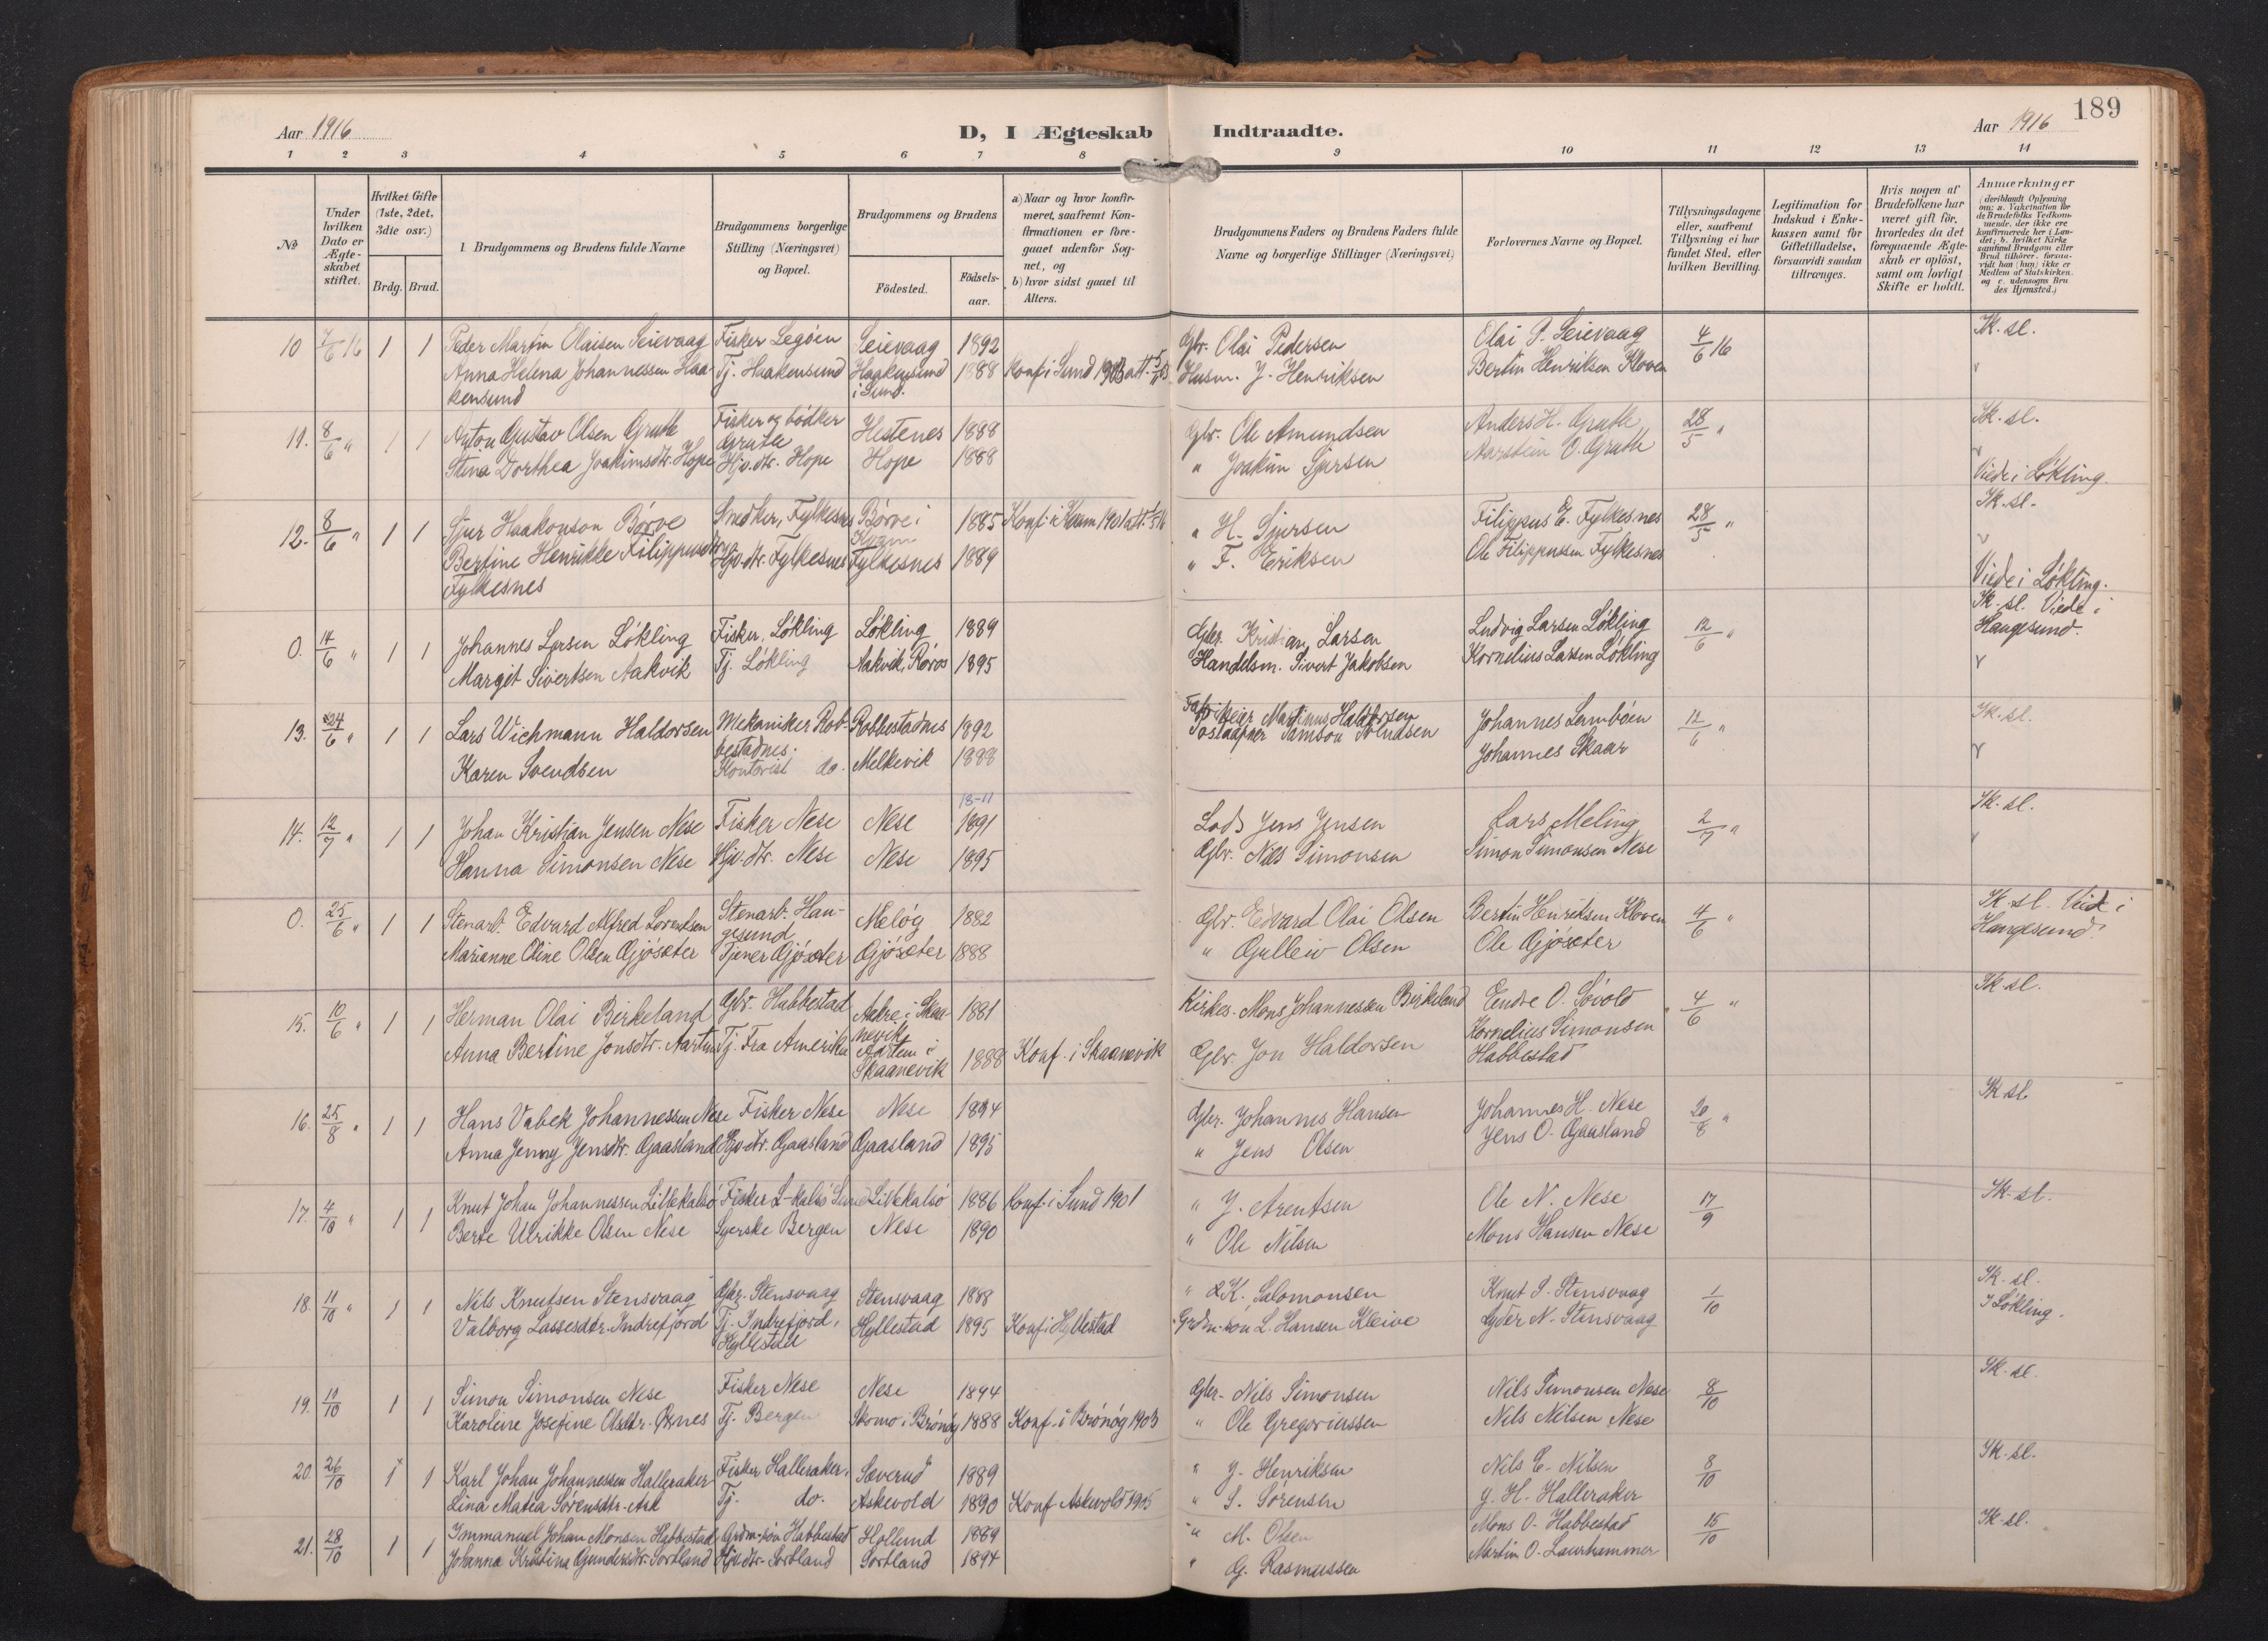 Aar 1916
D, I Ægteskab Indtraadte.
Aar 1916
189
1 2 3 4 5 6 7 8 9 10 11 12 13 14
No
Under hvilken Dato er Ægteskabet stiftet.
Hvilket Gifte (1ste, 2det, 3die osv.)
Brdg. Brud.
Brudgommens og Brudens fulde Navne
Brudgommens borgerlige Stilling (Næringsvei) og Bopæl.
Brudgommens og Brudens
Födested.
Födsels-aar.
a) Naar og hvor konfirmeret, saafremt Konfirmationen er foregaaet udenfor Sognet, og
b) hvor sidst gaaet til Alters.
Brudgommens Faders og Brudens Faders fulde Navne og borgerlige Stillinger (Næringsvei)
Forlovernes Navne og Bopæl.
Tillysningsdagene eller, saafremt Tillysning ei har fundet Sted, efter hvilken Bevilling.
Legitimation for Indskud i Enkekassen samt for Giftetilladelse, forsaavidt saadan tiltrænges.
Hvis nogen af Brudefolkene har været gift för, hvorledes da det foregaaende Ægteskab er oplöst, samt om lovligt Skifte er holdt.
Anmærkninger (deriblandt Oplysning om: a. Vakcination for de Brudefolks Vedkommende, der ikke ere konfirmerede her i Landet; b. hvilket Kirkesamfund Brudgom eller Brud tilhörer, forsaavidt han (hun) ikke er Medlem af Statskirken. og c. udensogns Brudes Hjemsted.)
10 7/6 16 1 1 Peder Martin Olaisen Seievaag Fisker Legöen Seievaag 1892 Gbr. Olai Pedersen Olai P. Seievaag 4/6 16 Sk. sl.
Anna Helena Johannessen Haa- Tj. Haakensund Haakensund 1888 Konf i Sund 1903 Husm. J. Henriksen Bertin Henriksen Kloven
kensund i Sund.
11. 8/6 " 1 1 Anton Gustav Olsen Gruth Fisker og bödker Hestenes 1888 Gbr. Ole Amundsen Anders H. Gruth 28/5 " Sk. sl.
Gruth
Stina Dorthea Joakimsdtr. Hope Hjv. dtr. Hope Hope 1888 " Joakim Sjursen Aarstein O. Gruth
Viede i Lökling.
12. 8/6 " 1 1 Sjur Haakonson Börve Snedker, Fylkesnes Börve i 1885 Konf. i Kvam 1901 " H. Sjursen Filippus E. Fylkesnes 28/5 " Sk. sl.
Kvam
Bertine Henrikke Filippusdtr. Hjv. dtr. Fylkesnes Fylkesnes 1889 " F. Eriksen Ole Filippussen Fylkesnes
Fylkesnes Viede i Lökling.
0. 14/6 " 1 1 Johannes Larsen Lökling Fisker, Lökling Lökling 1889 Gbr. Kristian Larsen Ludvig Larsen Lökling 12/6 " Sk. sl. Viede i
Haugesund.
Margit Sivertsen Aakvik Tj. Lökling Aakvik, Röros 1895 Handelsm. Sivert Jakobsen Kornelius Larsen Lökling
13. 24/6 " 1 1 Lars Wichmann Haldorsen Mekaniker Rob- Robbestadnes 1892 Fabrikeier Martinus Haldorsen Johannes Lamböen 12/6 " Sk. sl.
bestadnes.
Karen Svendsen Kontorist do. Melkevik 1888 Postaapner Samson Svendsen Johannes Skaar
18-11
14. 12/7 " 1 1 Johan Kristian Jensen Nese Fisker Nese Nese 1891 Lods Jens Jensen Lars Meling 2/7 " Sk. sl.
Hanna Simonsen Nese Hjv. dtr. Nese Nese 1895 Gbr. Nils Simonsen Simon Simonsen Nese
0. 25/6 " 1 1 Stenarb. Edvard Alfred Lorentsen Stenarb. Hau- Melög 1882 Gbr. Edvard Olai Olsen Bertin Henriksen Kloven 4/6 " Sk. sl. Vied i
gesund Haugesund.
Marianne Oline Olsen Gjösæter Tjener Gjösæter Gjösæter 1888 " Gulleiv Olsen Ole Gjösæter
15. 10/6 " 1 1 Herman Olai Birkeland Gbr. Habbestad Aakre i Skaa- 1881 Kirkes. Mons Johannessen Birkeland Endre O. Sövold 4/6 " Sk. sl.
nevik
Anna Bertine Jonsdtr. Aartun Tj. Fra Amerika i Skaanevik 1888 Konf. i Skaanevik Gbr. Jon Haldorsen Kornelius Simonsen
Habbestad
16. 25/8 " 1 1 Hans Vabek Johannessen Nese Fisker Nese Nese 1894 Gbr. Johannes Hansen Johannes H. Nese 20/8 " Sk. sl.
Anna Jenny Jensdtr. Gaasland Hjv. dtr. Gaasland Gaasland 1895 " Jens Olsen Jens O. Gaasland
17. 4/10 " 1 1 Knut Johan Johannessen Lillekalsö Fisker L-kalsö Sund Lillekalsö 1886 Konf. i Sund 1901 " J. Arentsen Ole N. Nese 17/9 Sk. sl.
Berte Ulrikke Olsen Nese Syerske Bergen Nese 1890 " Ole Nilsen Mons Hansen Nese
18. 11/10 " 1 1 Nils Knutsen Stensvaag Gbr. Stensvaag Stensvaag 1888 " K. Salomonsen Knut S. Stensvaag 1/10 Sk. sl.
I Lökling.
Valborg Lassesdtr. Indrefjord Tj. Indrefjord, Hyllestad 1895 Konf i Hyllestad Grdm.-sön L. Hansen Kleive Lyder N. Stensvaag
Hyllestad
19. 11/10 1 1 Simon Simonsen Nese Fisker Nese Nese 1894 Gbr. Nils Simonsen Nils Simonsen Nese 8/10 Sk. sl.
Karoline Josefine Olsdtr. Tj. Bergen Skomo i Brönöy 1888 Konf. i Brönöy 1903 " Ole Gregoriussen Nils Nilsen Nese
20. 26/10 1 1 Karl Johan Johannessen Halleraker Fisker Halleraker. Sæverud 1889 " J. Henriksen Nils E. Nilsen 8/10 Sk. sl.
Lina Matea Sörensdtr. Ask Tj. do. Askevold 1890 Konf Askevold 1905 " S. Sörensen J. H. Halleraker
21. 28/10 1 1 Immanuel Johan Monsen Habbestad Grdm-sön Habbestad Hollund 1889 " M. Olsen Mons O. Habbestad 15/10 Sk. sl.
Johanna Kristina Gundersdtr. Sortland Hjv. dtr. Sortland Sortland 1894 " G. Rasmussen Martin O. Laurhammer